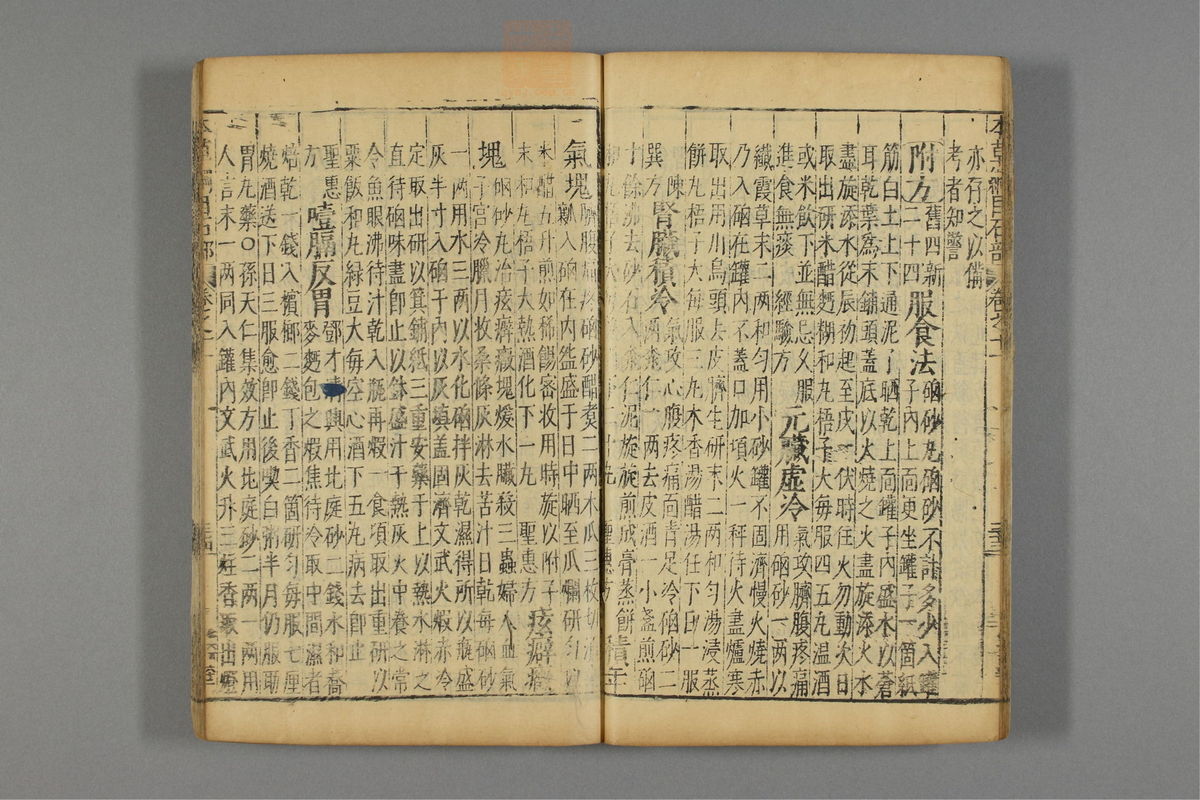 亦存之以備
考者知警
附方
舊四新
二十四
服食法
硇砂丸硇砂不計多少入罐
子內上面更坐罐子一箇紙
筋白土上下通泥了晒乾上面罐子內盛水以蒼
耳乾葉為末鋪頭蓋底以火燒之火盡旋添火水
盡旋添水從辰初起至戌一伏時住火勿動次日
取出研米醋麪糊和丸梧子大每服四五丸温酒
或米飲下並無忌久服
進食無痰 經驗方
元臟虛冷
氣攻臍腹疼痛
用硇砂一兩以
纖霞草末二兩和匀用小砂罐不固濟慢火燒赤
乃入硇在罐內不蓋口加頂火一秤待火盡爐寒
取出用川烏頭去皮臍生研末二兩和匀湯浸蒸
餅丸梧子大每服三丸木香湯醋湯任下日一服
陳
巽方
腎臟積冷
氣攻心腹疼痛面青足冷硇砂二
兩桃仁一兩去皮酒一小盞煎硇
十餘沸去砂石入桃仁泥旋旋煎成膏蒸餅
積年
氣塊
硇砂醋煮二兩木瓜三枚切
瓤入硇在內盌盛于日中晒至瓜爛研匀以
米醋五升煎如稀餳密收用時旋以附子
末和丸梧子大熱酒化下一丸 聖惠方
痃癖癥
塊
硇砂丸治痃癖癥塊煖水臟殺三蟲婦人血氣
子宮冷臘月收桑條灰淋去苦汁日乾每硇砂
一兩用水三兩以水化硇拌灰乾濕得所以瓶盛
灰半寸入硇于內以灰填蓋固濟文武火煅赤冷
定取出研以箕鋪紙三重安藥于上以熱水淋之
直待硇味盡即止以鉢盛汁于熱灰火中養之常
令魚眼沸待汁乾入瓶再煅一食頃取出重研以
粟飯和丸綠豆大每空心酒下五丸病去即止
聖惠
方
噎膈反胃
鄧才清興用北庭砂二錢水和蕎
麥麪包之煅焦待冷取中間濕者
焙乾一錢入檳榔二錢丁香二箇研匀每服七厘
燒酒送下日三服愈即止後喫白粥半月仍服助
胃丸藥○孫天仁集效方用北庭砂二兩一兩用
人言末一兩同入罐內文武火升三炷香取出燈